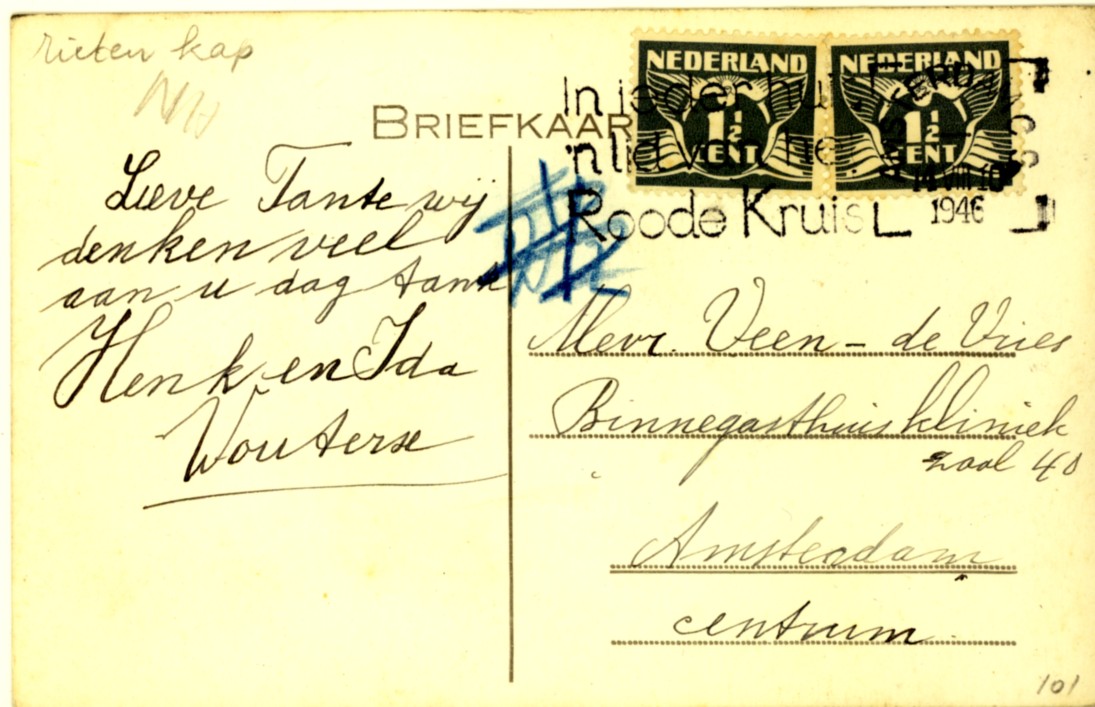 rieten kap
NH
BRIEFKAAR
NEDERLAND NEDERLAND
1½ 1½
CENT CENT
In ieder huis
'n lid van het
Roode Kruis
AMSTERDAM C.S.
14 VIII 10
1946
Lieve Tante wij
denken veel
aan u dag tante
Henk en Ida
Wouterse
Mevr. Veen - de Vries
Binnegasthuiskliniek
zaal 40
Amsterdam
centrum.
101